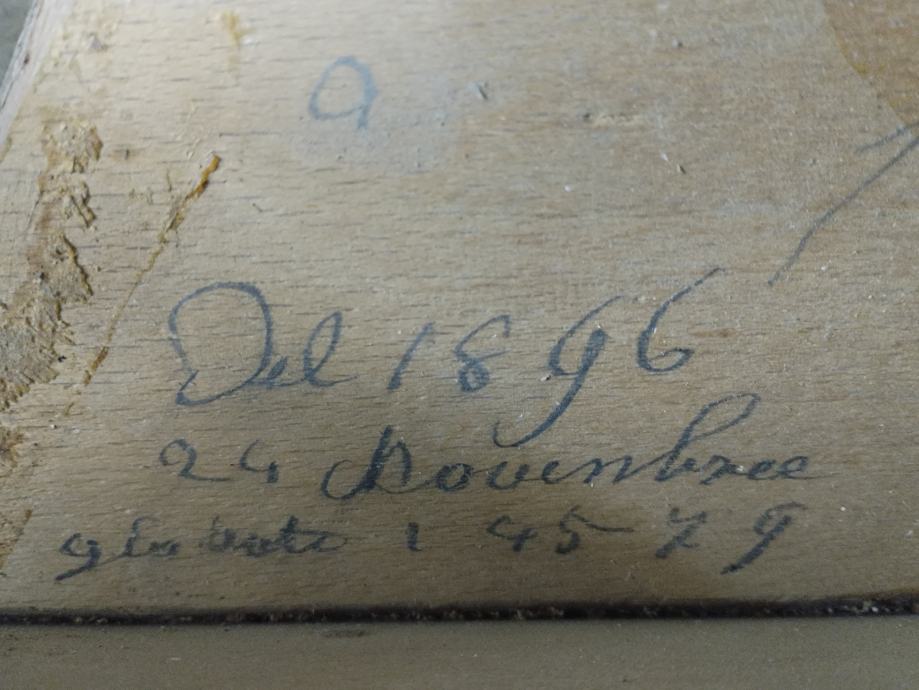 9
Del 1896
24 Novenbree
1 45 7 9